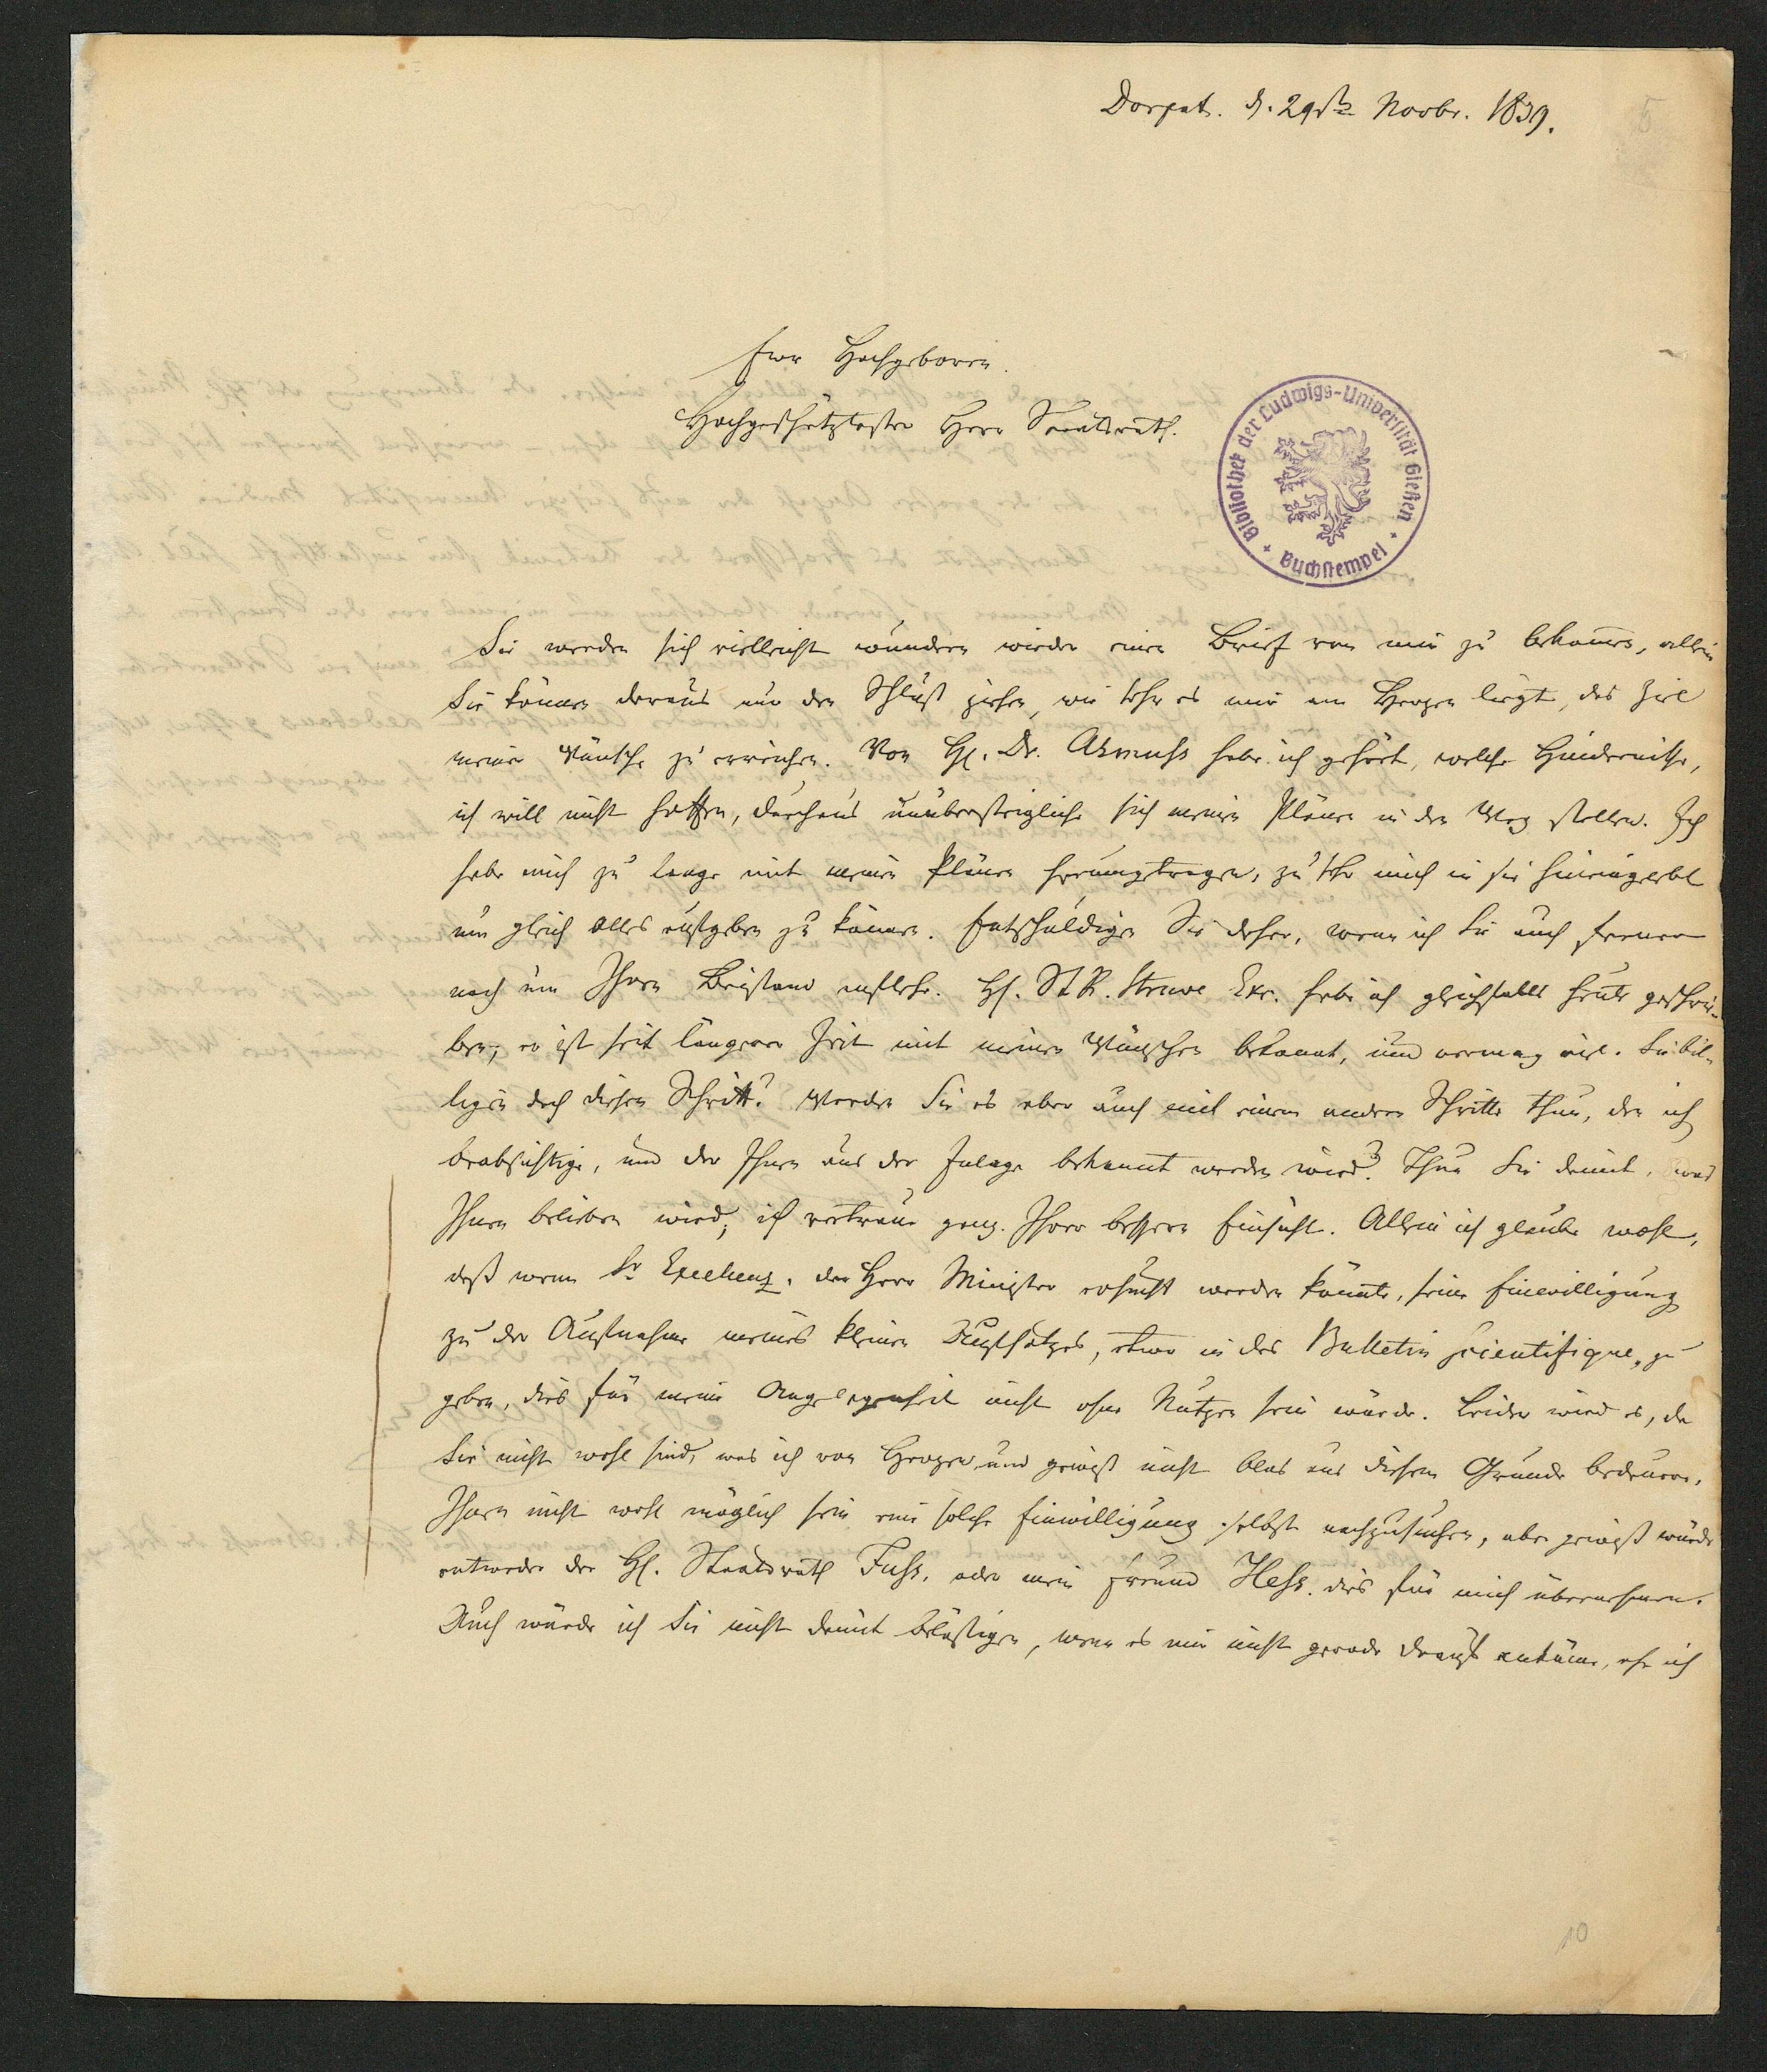 Dorpat. d. 29sten Novbr. 1839.
5
Ewr Hochgeboren.
Hochgeschätztester Herr Staatsrath.
Bibliothek der Ludwigs-Universität Gießen
Buchstempel
Sie werden sich vielleicht wundern wieder einen Brief von mir zu bekommen, allein
Sie können daraus nur den Schluß ziehen, wie sehr es mir am Herzen liegt, das Ziel
meiner Wünsche zu erreichen. Von H. Dr. Asmuss habe ich gehört, welche Hindernisse,
ich will nicht hoffen, durchaus unübersteigliche sich meinen Plänen in den Weg stellen. Ich
habe mich zu lange mit meinen Plänen herumgetragen, zu sehr mich in sie hineingelebt
um gleich alles aufgeben zu können. Entschuldigen Sie daher, wenn ich Sie auch ferner
noch um Ihren Beistand anflehe. H. St.R. Struve Exc. habe ich gleichfalls heute geschrie-
ben; er ist seit längerer Zeit mit meinen Wünschen bekannt, und vermag viel. Sie bil-
ligen doch diesen Schritt? Werden Sie es aber auch mit einem anderen Schritte thun, den ich
beabsichtige, und der Ihnen aus der Inlage bekannt werden wird? Thun Sie damit, was
Ihnen belieben wird; ich vertraue ganz Ihrer besseren Einsicht. Allein ich glaube wohl,
daß wenn Sr Excellenz, der Herr Minister ersucht werden könnte, seine Einwilligung
zu der Aufnahme meines kleinen Aufsatzes, etwa in das Bulletin scientifique, zu
geben, dies für meine Angelegenheit nicht ohne Nutzen sein würde. Leider wird es, da
Sie nicht wohl sind, was ich von Herzen und gewiß nicht blos aus diesem Grunde bedaure,
Ihnen nicht wohl möglich sein eine solche Einwilligung selbst nachzusuchen, aber gewiß würde
entweder der H. Staatsrath Fuss, oder mein Freund Hess dies für mich übernehmen.
Auch würde ich Sie nicht damit belästigen, wenn es mir nicht gerade darauf ankäme, ehe ich
10